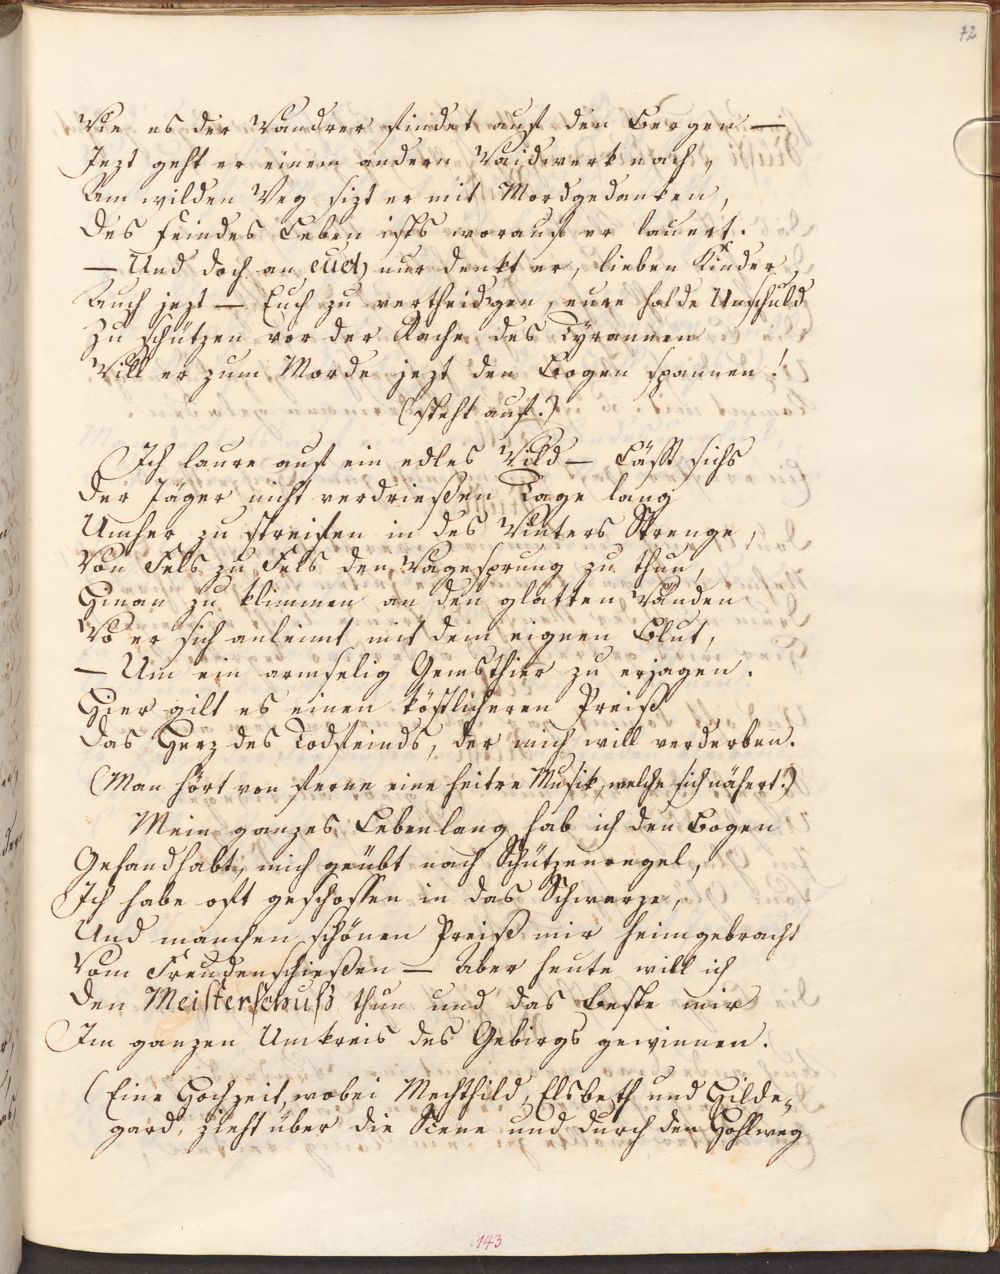 72
Wie es der Wandrer findet auf den Bergen —
Jezt geht er einem andern Waidwerk nach,
Am wilden Weg sizt er mit Mordgedanken,
Des Feindes Leben ists worauf er lauert.
— Und doch an euch nur denkt er, lieben Kinder,
Auch jezt — Euch zu vertheidgen, eure holde Unschuld
Zu schützen vor der Rache des Tyrannen
Will er zum Morde jezt den Bogen spannen!
(steht auf.)
Ich laure auf ein edles Wild — Läßt sichs
Der Jäger nicht verdrießen Tage lang
Umher zu streifen in des Winters Strenge,
Von Fels zu Fels den Wagesprung zu thun,
Hinan zu klimmen an den glatten Wänden
Wo er sich anleimt mit dem eignen Blut,
— Um ein armselig Gemsthier zu erjagen.
Hier gilt es einen köstlicheren Preiß
Das Herz des Todfeinds, der mich will verderben.
(Man hört von ferne eine heitre Musik, welche sich nähert.)
Mein ganzes Leben lang hab ich den Bogen
Gehandhabt, mich geübt nach Schützenregel,
Ich habe oft geschossen in das Schwarze,
Und manchen schönen Preiß mir heimgebracht
Vom Freudenschießen — aber heute will ich
Den Meisterschuß thun und das Beste mir
Im ganzen Umkreis des Gebirgs gewinnen.
(Eine Hochzeit, wobei Mechthild, Elsbeth und Hilde-
gard, zieht über die Scene und durch den Hohlweg
143